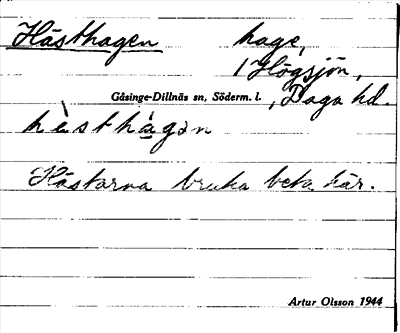 Hästhagen hage,
1 Högsjön,
Gåsinge-Dillnäs sn, Söderm. l., Daga hd.
hàsthágən
Hästarna bruka beta här.
Artur Olsson 1944